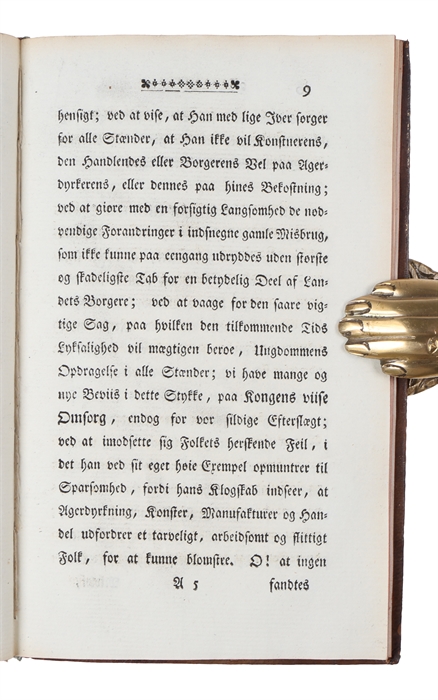 9
hensigt; ved at vise, at Han med lige Iver sorger
for alle Stænder, at Han ikke vil Konstnerens,
den Handlendes eller Borgerens Vel paa Ager-
dyrkerens, eller dennes paa hines Bekostning;
ved at giøre med en forsigtig Langsomhed de nød-
vendige Forandringer i indsnegne gamle Misbrug,
som ikke kunne paa eengang udryddes uden største
og skadeligste Tab for en betydelig Deel af Lan-
dets Borgere; ved at vaage for den saare vig-
tige Sag, paa hvilken den tilkommende Tids
Lyksalighed vil mægtigen beroe, Ungdommens
Opdragelse i alle Stænder; vi have mange og
nye Beviis i dette Stykke, paa Kongens viise
Omsorg, endog for vor sildige Efterslægt;
ved at imodsette sig Folkets herskende Feil, i
det han ved sit eget høie Exempel opmuntrer til
Sparsomhed, fordi hans Klogskab indseer, at
Agerdyrkning, Konster, Manufakturer og Han-
del udfordrer et tarveligt, arbeidsomt og flittigt
Folk, for at kunne blomstre. O! at ingen
A 5 fandtes